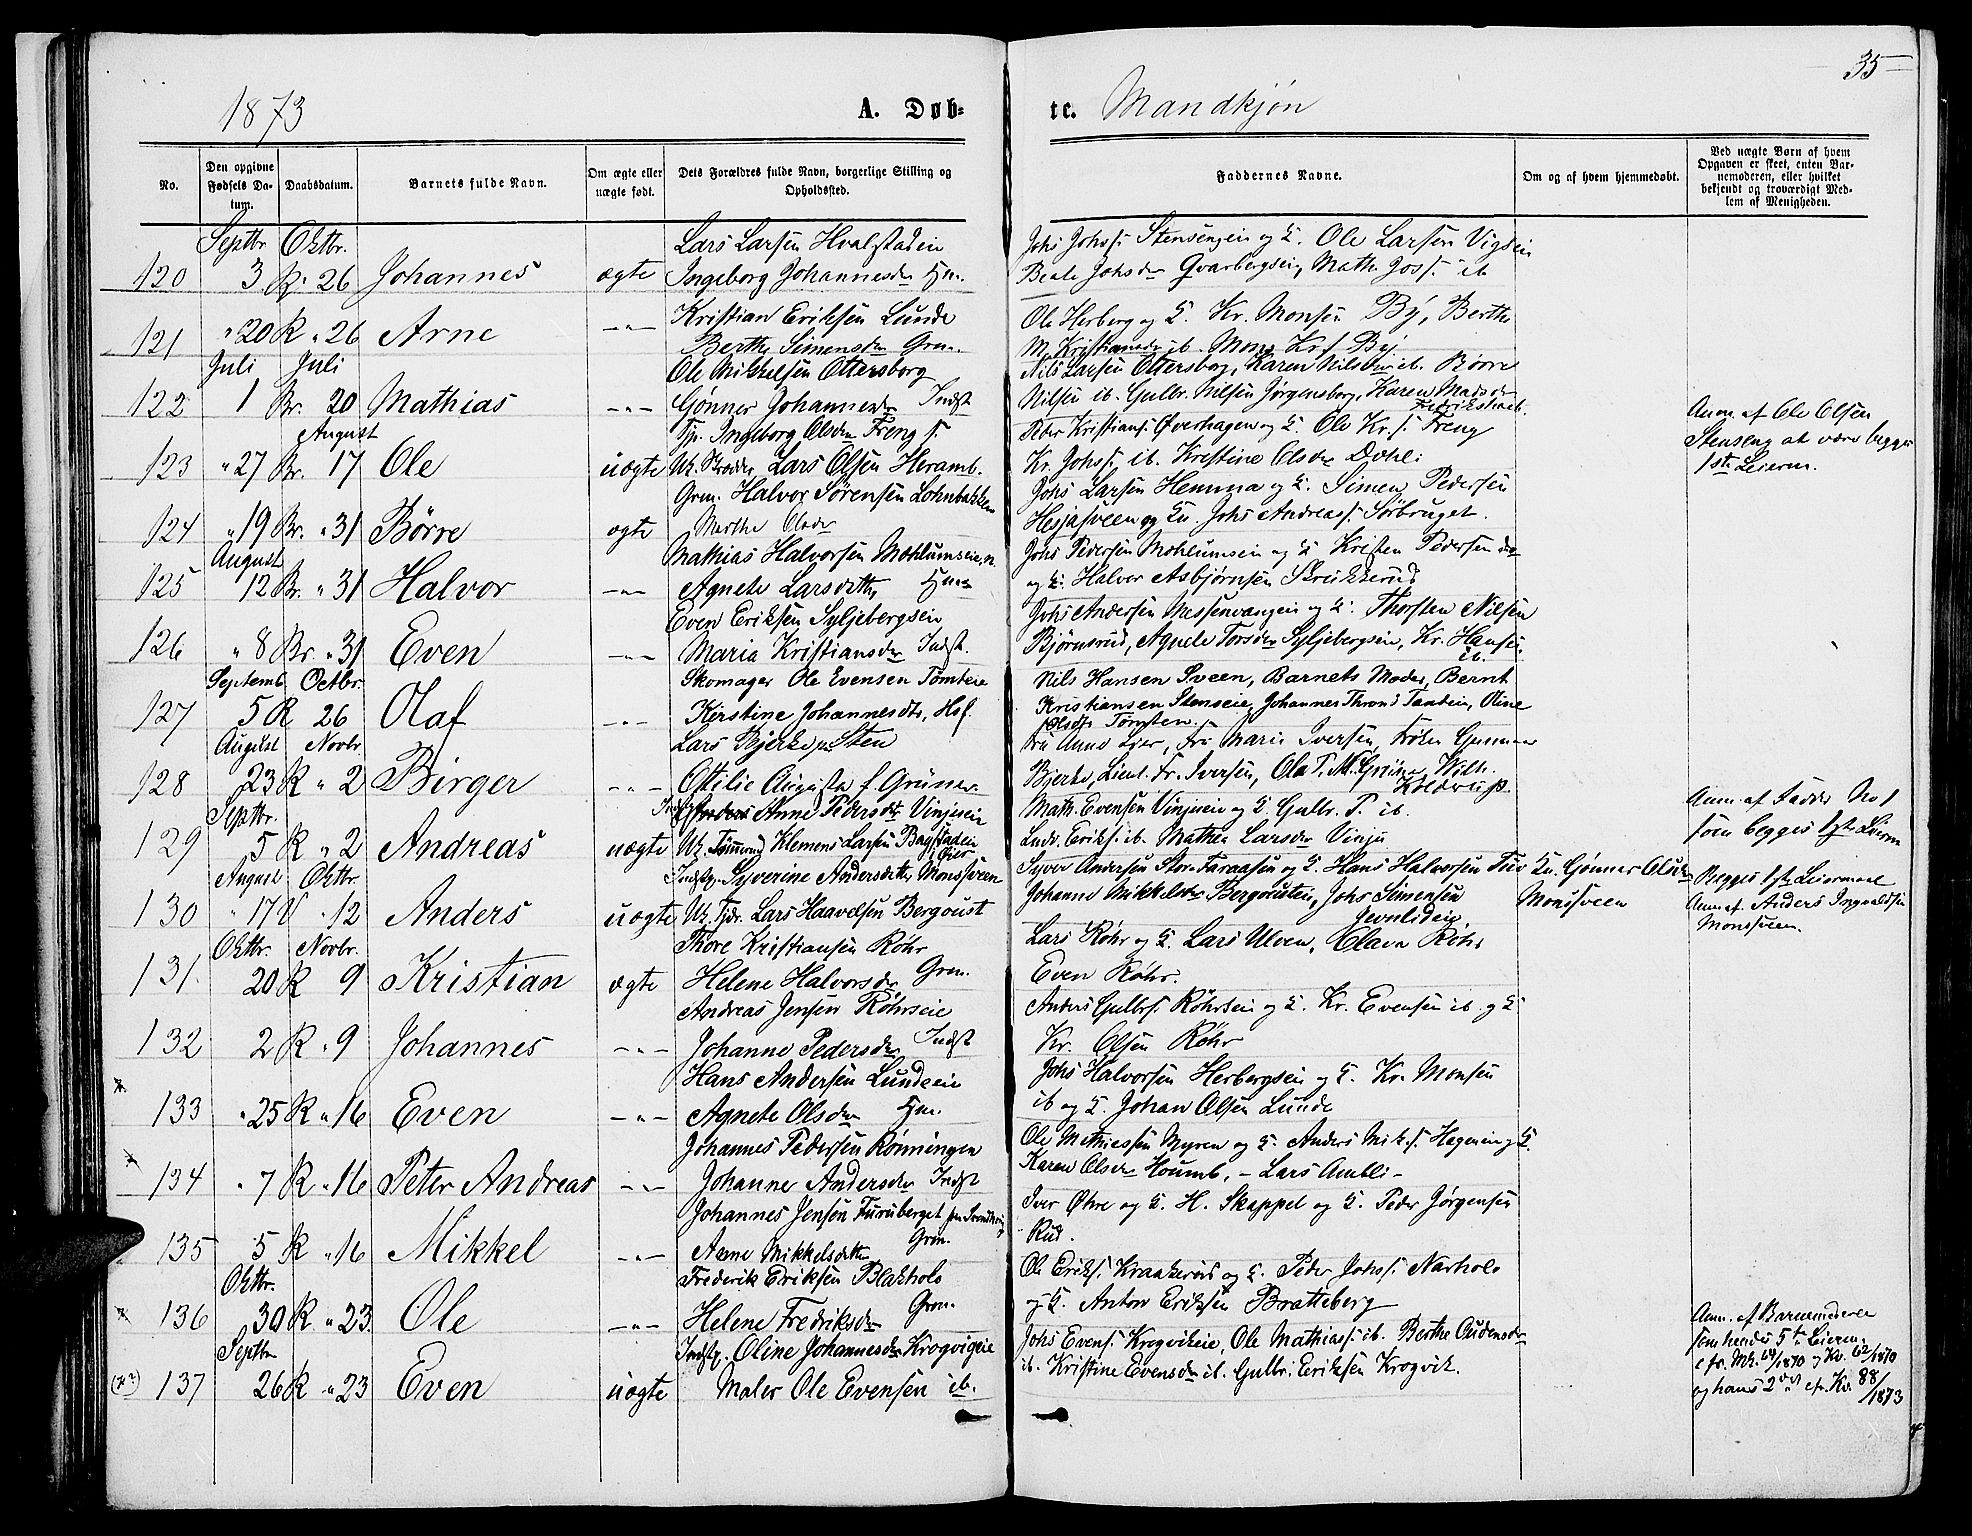 35
1873
A. Døb-
te. Mandkjøn
No.
Den opgivne Fødsels Datum.
Daabsdatum.
Barnets fulde Navn.
Om ægte eller uægte født.
Dets Forældres fulde Navn, borgerlige Stilling og Opholdssted.
Faddernes Navne.
Om og af hvem hjemmedøbt.
Ved uægte Børn af hvem Opgaven er skeet, enten Barnemoderen, eller hvilket bekjendt og troværdigt Medlem af Menigheden.
Septbr. Oktbr. Lars Larsen Hvalstadeie
Johs Johs. Stensengeie og K. Ole Larsen Vigeie
120 3 K. 26 Johannes ægte Ingeborg Johannesdr Hjm.
Beate Johsdr Qvarbergseie, Math. Joss. ib
Kristian Eriksen Lunde
Ole Herberg og K. Kr. Monsen By, Berthe
121 " 20 K " 26 Arne -"- Berthe Simensdr Grm.
M. Kristiansdr ib. Mons Kr. By
Juli Juli Ole Mikkelsen Ottersborg
Nils Larsen Ottersborg, Karen Nilsdr ib. Børre
122 1 Br. 20 Mathias -"- Gonner Johannesdr Indst
Nilsen ib. Gulbr. Nilsen Jørgensborg, Karen Madsdr Fredrikstad.
August Tjp. Ingeborg Olsdr Freng f.
Peter Kristians. Øverhagen og K. Ole Kr. s. Freng
123 " 27 Br. 17 Ole uægte Uk. Skrædder Lars Olsen Heramb.
Kr. Johs. ib. Kristine Olsdr Dahl.
Anm. af Ole Olsen
Stenseng at være begges
1ste Leierm.
Grm. Halvor Sørensen Lohnbakken
Johs Larsen Hemma og K. Simen Pedersen
124 " 19 Br. " 31 Børre ægte Marthe Olsdr
Hesjasveen og K. Johs Andreass. Sørbruget.
August Mathias Halvorsen Mæhlumseie
Johs Pedersen Mæhlumseie og K. Kristen Pedersen do
125 12 Br. " 31 Halvor -"- Agnete Larsdtt. Hjm.
og K. Halvor Asbjørnsen Skrukkerud
Even Eriksen Syljebergseie
Johs Andersen Messenvangen og K. Thorsten Nilsen
126 " 8 Br " 31 Even -"- Maria Kristiansdr Indst.
Bjørnsrud, Agnete Torsdr Syljebergseie, Kr. Hansen ib.
Septemb. Octbr. Skomager Ole Evensen Tømteie
Nils Hansen Sveen, Barnets Moder, Bernt
127 5 K 26 Olaf -"- Kirstine Johannesdtr, Hsf.
Kristiansen Stenseie, Johannes Thrond Tandeie, Oline
Olsdtr Tømten.
August Novbr. Lars Bjerke p. Sten
Fru Anne Lier, Fru Marie Iversen, Frøken Gunnar
128 23 K " 2 Birger -"- Ottilie Augusta f. Grüner
Bjerke, Lieut. Fr. Iversen, Ola T. M. Grüner, Wilh. Koldrup.
Septbr. Indst. Anne Pedersdr Vinjeseie
Math. Evensen Vinjeseie og K. Gulbr. P. ib.
129 5 K " 2 Andreas uægte Uk. Tømmermd Klemens Larsen Bagstadeie Øier
Ludv. Eriks. ib. Mathea Larsdr Vinju
Anm. af Fadder No 1
som begges 1ste Leierm
August Oktbr. Indstp. Syverine Andersdatter Monssveen
Syver Andersen Stor-Faraasen og K. Hans Halvorsen Tuv
Kn. Gønner Olsdr
Begges 1ste Leiermaal
130 " 17 V " 12 Anders uægte Uk. Tjdr. Lars Haavelsen Bergoust
Johanne Mikkelsdr Bergousteie, Johs Simensen Jevnlideie
Monssveen
Anm. af Anders Ingvaldsen
Monssveen.
Oktbr. Novbr. Thore Kristiansen Röhr
Lars Röhr og K. Lars Ulven, Olava Röhr
131. 20 K 9 Kristian ægte Helene Halvorsdr Grm.
Even Röhr.
Andreas Jensen Röhrseie
Anders Gulbrs. Röhrseie og K. Kr. Evensen ib. og K
132 2 K " 9 Johannes -"- Johanne Pedersdr Indst
Kr. Olsen Röhr
Hans Andersen Lundeeie
Johs Halvorsen Herbergseie og K. Kr. Monsen
133 " 25 K " 16 Even -"- Agnete Olsdr Hjm.
ib og K. Johan Olsen Lunde
Johannes Pedersen Rønningen
Ole Mathiessen Myren og K. Anders Mik.s. Hageneie og K.
134 " 7 K " 16 Peter Andreas -"- Johanne Andersdr Indst
Karen Olsdr Houmb, - Lars Ambli -
Johannes Jensen Furuberget
Iver Øhre og K. H. Skappel og K. Peder Jørgensen
135 5 K " 16 Mikkel -"- Anne Mikkelsdatter Grm.
Rud.
Oktbr. Frederik Eriksen Blakholo
Ole Eriks. Kraakerud og K. Peder Johs. Narholo
136 30 K " 23. Ole -"- Helene Fredriksdr Grm.
og K. Anton Eriksen Bratteberg
Septbr. Indstp. Oline Johannesdr Krogvigeie
Johs Evens. Krogvikeie, Ole Mathiass. ib. Berthe Audensdr
137 26 K " 23 Even uægte Maler Ole Evensen ib.
ib. Kristine Evensdr ib. Gulbr. Eriksen Krogvik.
Anm. af Barnemoderen
som hendes 5te Leierm.
cfr. Mk. 64/1870 og Kv. 62/1870
og hans 2det cfr. Kv. 88/1873